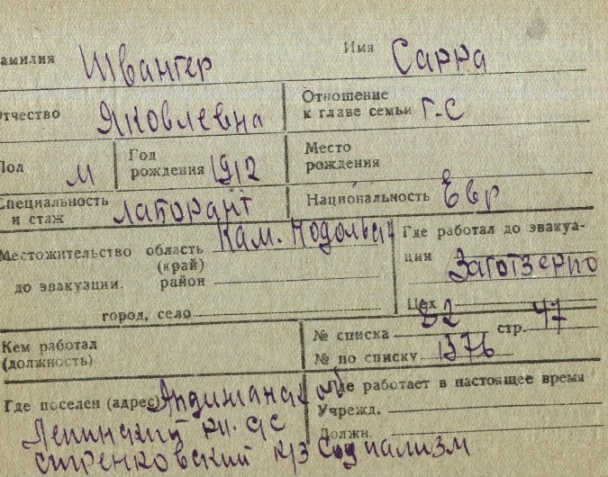 амилия Швангер Имя Сарра
тчество Яковлевна Отношение к главе семьи Г-С
Пол М Год рождения 1912 Место рождения
Специальность и стаж лаборант Национальность Евр
Местожительство область Кам. Подольск Где работал до эвакуа-
(край) ции Заготзерно
до эвакуации. район
Цех
город, село
Кем работал (должность) № списка 82 стр. 47
№ по списку 1376
Где поселен (адрес) Андижанск об Где работает в настоящее время
Ленинский Учрежд.
Должн.
к/з Социализм